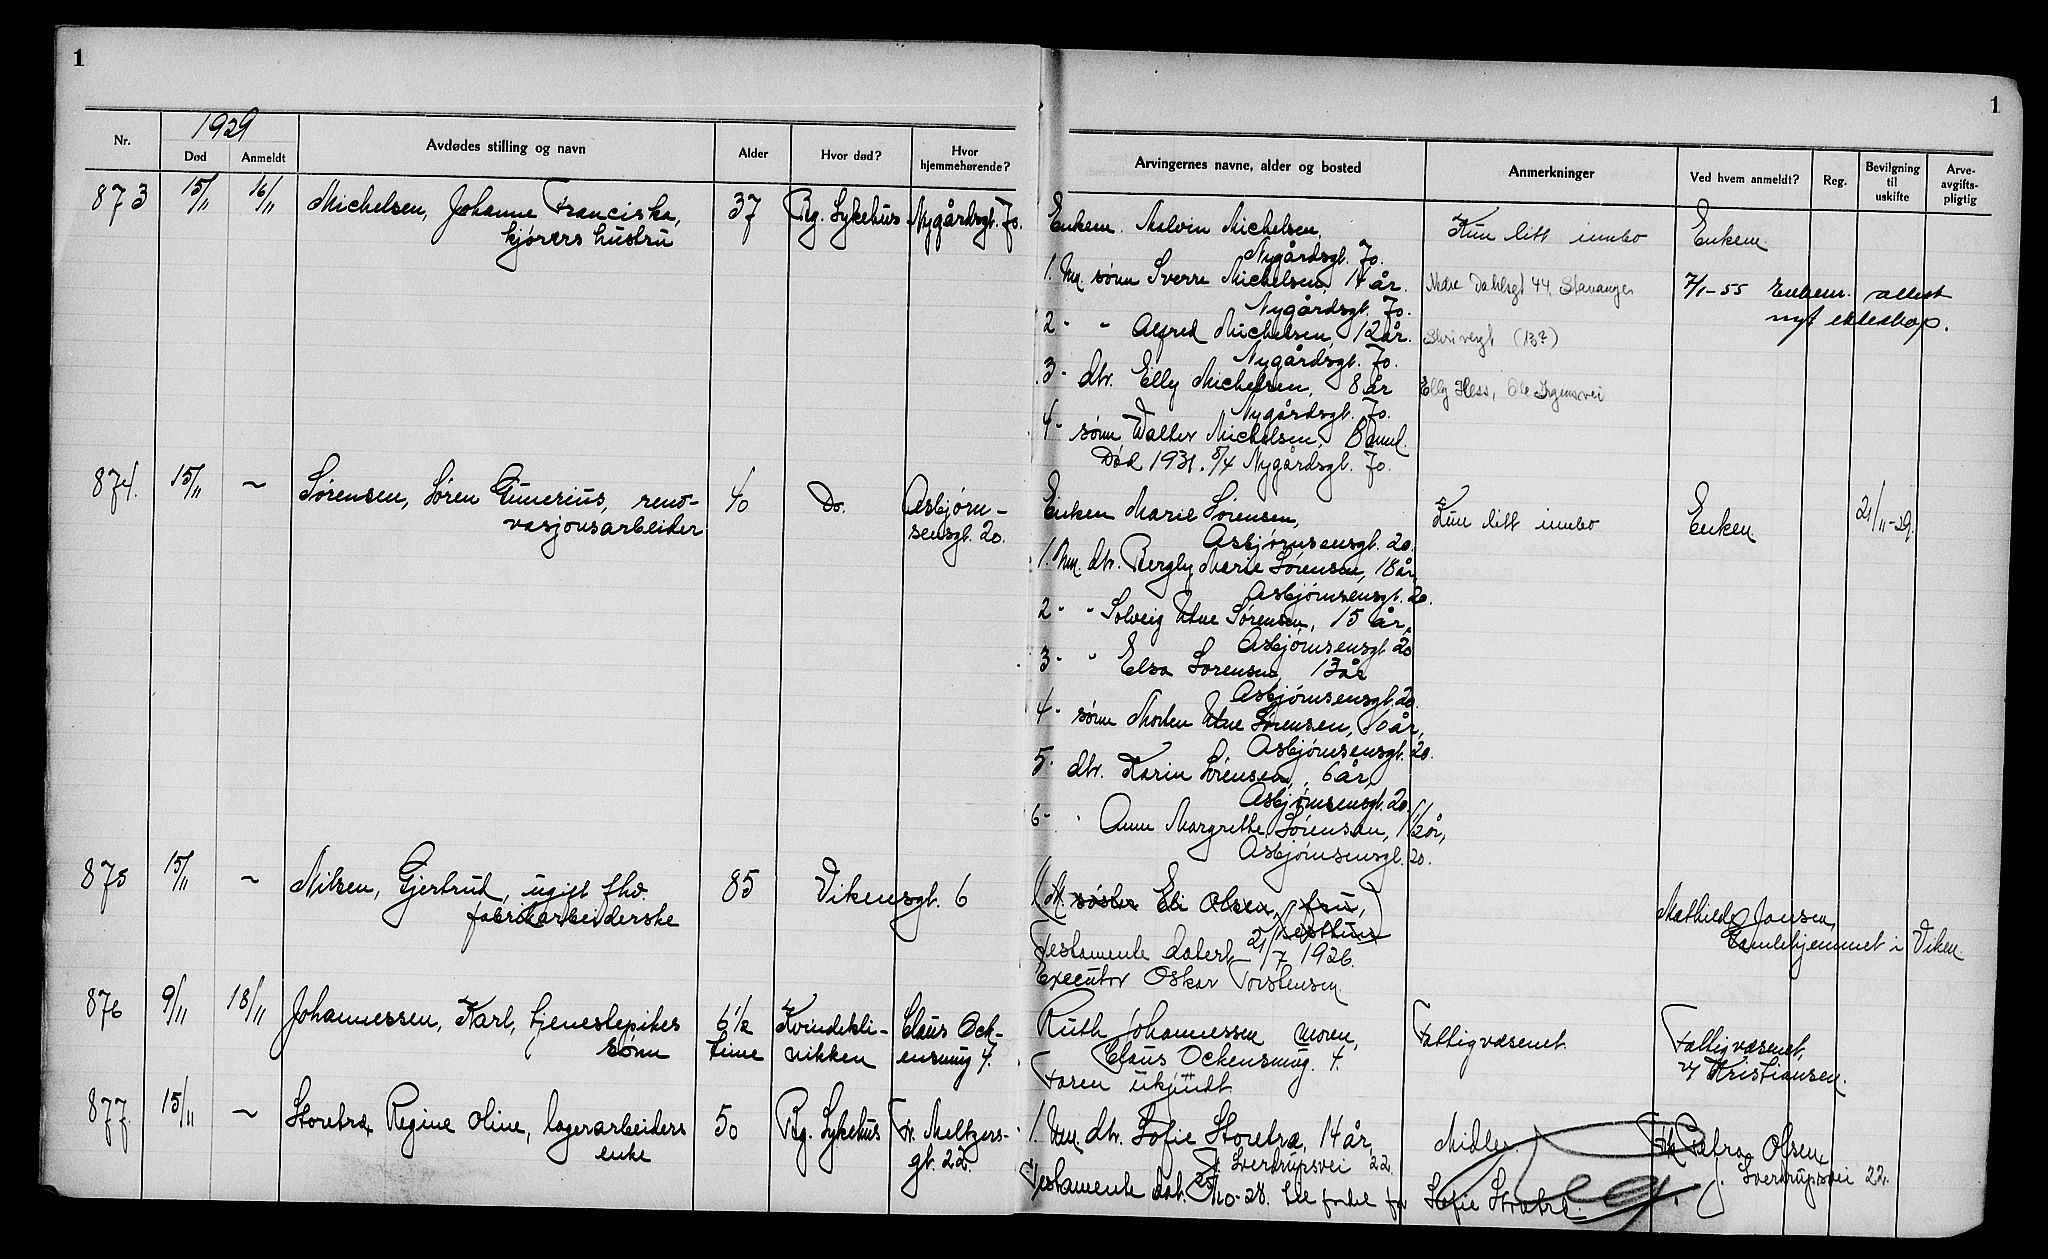 1
1
1929
Nr.
Død
Anmeldt
Avdødes stilling og navn
Alder
Hvor død?
Hvor hjemmehørende?
Arvingernes navne, alder og bosted
Anmerkninger
Ved hvem anmeldt?
Reg.
Bevilgning til uskifte
Arveavgiftspligtig
873 15/11 16/11 Michelsen, Johanne Franciska, 37 Bg. Sykehus Nygårdsgt. 70.
kjørers hustru
Enkem. Malvin Michelsen, Kun litt innbo Enkem.
Nygårdsgt. 70.
1. Um. sønn Sverre Michelsen, 14 år. Nedre Dahlsgt 44, Stavanger 7/1-55 Enkem. attest
Nygårdsgt. 70. nyt ekteskap.
2 - " Alfred Michelsen, 12 år. Skrivergt (13?)
Nygårdsgt. 70.
3 - dtr. Elly Michelsen, 8 år Elly Hess, Ole Irgensvei
Nygårdsgt. 70.
4 - sønn Walter Michelsen, 8 mnd.
Død 1931. 8/4 Nygårdsgt. 70.
874. 15/11 ~ Sørensen, Søren Gunerius, reno- 40 Do. Asbjørn-
vasjonsarbeider sensgt. 20.
Enken Marie Sørensen, Kun litt innbo Enken 21/11-29.
Asbjørnsensgt. 20.
1. Um. dtr. Bergly Marie Sørensen, 18 år,
Asbjørnsensgt. 20.
2 - " Solveig Utne Sørensen, 15 år,
Asbjørnsensgt. 20
3 - " Elsa Sørensen, 13 år
Asbjørnsensgt. 20.
4 - sønn Morten Utne Sørensen, 10 år,
Asbjørnsensgt. 20.
5 - dtr. Karin Sørensen, 6 år,
Asbjørnsensgt. 20.
6 - " Anne Margrethe Sørensen, 1 1/2 år,
Asbjørnsensgt. 20.
875 15/11 ~ Nilsen, Gjertrud, ugift fhv. 85 Vikensgt. 6
fabrikarbeiderske
1 M. søster Eli Olsen, fru, Mathilde Jansen,
Nesttun Gamlehjemmet i Viken.
Testamente datert 21/7 1926.
Executor Oskar Torstensen.
876 9/11 18/11 Johannessen, Karl, tjenestepikes 6 1/2 Kvindekli- Claus Ock-
sønn time nikken ensmug 4.
Ruth Johannessen moren, Fattigvæsenet. Fattigvæsenet,
Claus Ockensmug. 4. v/ Kristiansen.
Faren ukjendt
877. 15/11 ~ Storetræ Regine Oline, lagerarbeiders 50 Bg. Sykehus Fr. Meltzers-
enke gt. 22.
1. Um. dtr. Sofie Storetræ, 14 år, Midler. Frk Petra Olsen,
J. Sverdrupsvei 22. J. Sverdrupsvei 22.
Testamente dat. /10-28. til fordel for Sofie Storetræ.